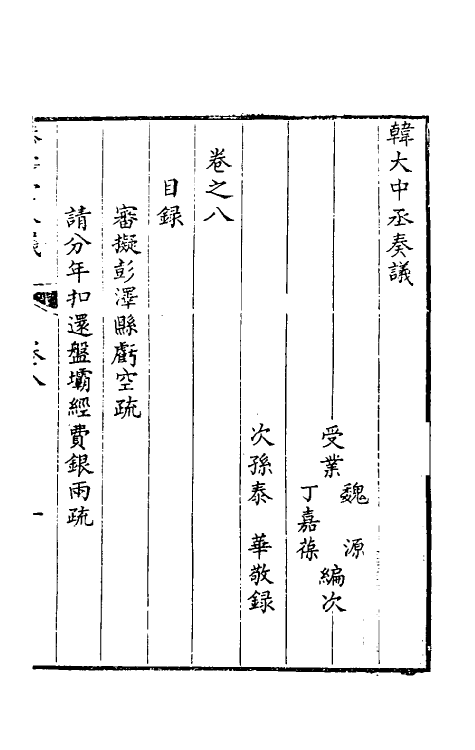 韓大中丞奏議
受業 魏源 丁嘉葆 編次
次孫泰華敬録
卷之八
目録
審擬彭澤縣虧空疏
請分年扣還盤壩經費銀兩疏
卷八
一